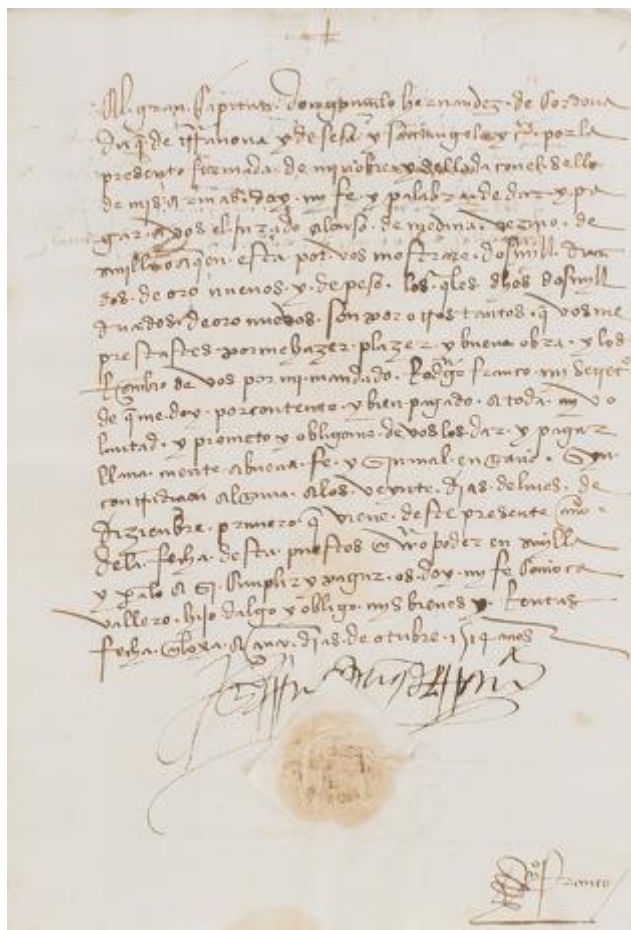 El gran Capitan don gonçalo hernandez de Cordova
duq̃ de trãnova y de sesa y santangelo &c. por la
presente firmada de mi nobre y sellada con el sello
de mis armas doy mi fe y palabra de dar y pa
gar a vos el jurado alonso de medina vezino de
sevilla o a quien esta por vos mostrare dos mill duca
dos de oro nuevos y de peso los q̃les dhos dos mill
ducados de oro nuevos son por otros tantos q̃ vos me
prestastes por me hazer plazer y buena obra y los
Rescibio de vos por mi mandado Rodgº franco mi secretº
de q̃ me doy por contento y bien pagado a toda mi vo
luntad y prometo y obligome de vos los dar y pagar
llana mente a buena fe y sin mal engaño syn
contienda alguna a los veynte dias del mes de
diziembre primero q̃ viene deste presente año
dela fecha desta puestos en vrõ poder en sevilla
y para lo asi cumplir y pagar os doy mi fe como ca
vallero hijo dalgo y obligo mys bienes y Rentas
fecha en loxa a dias de otubre 1514 años
franco